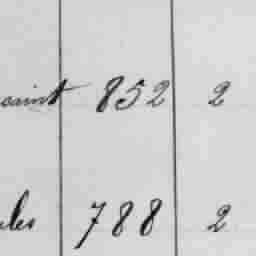 saint 852 2
les 788 2